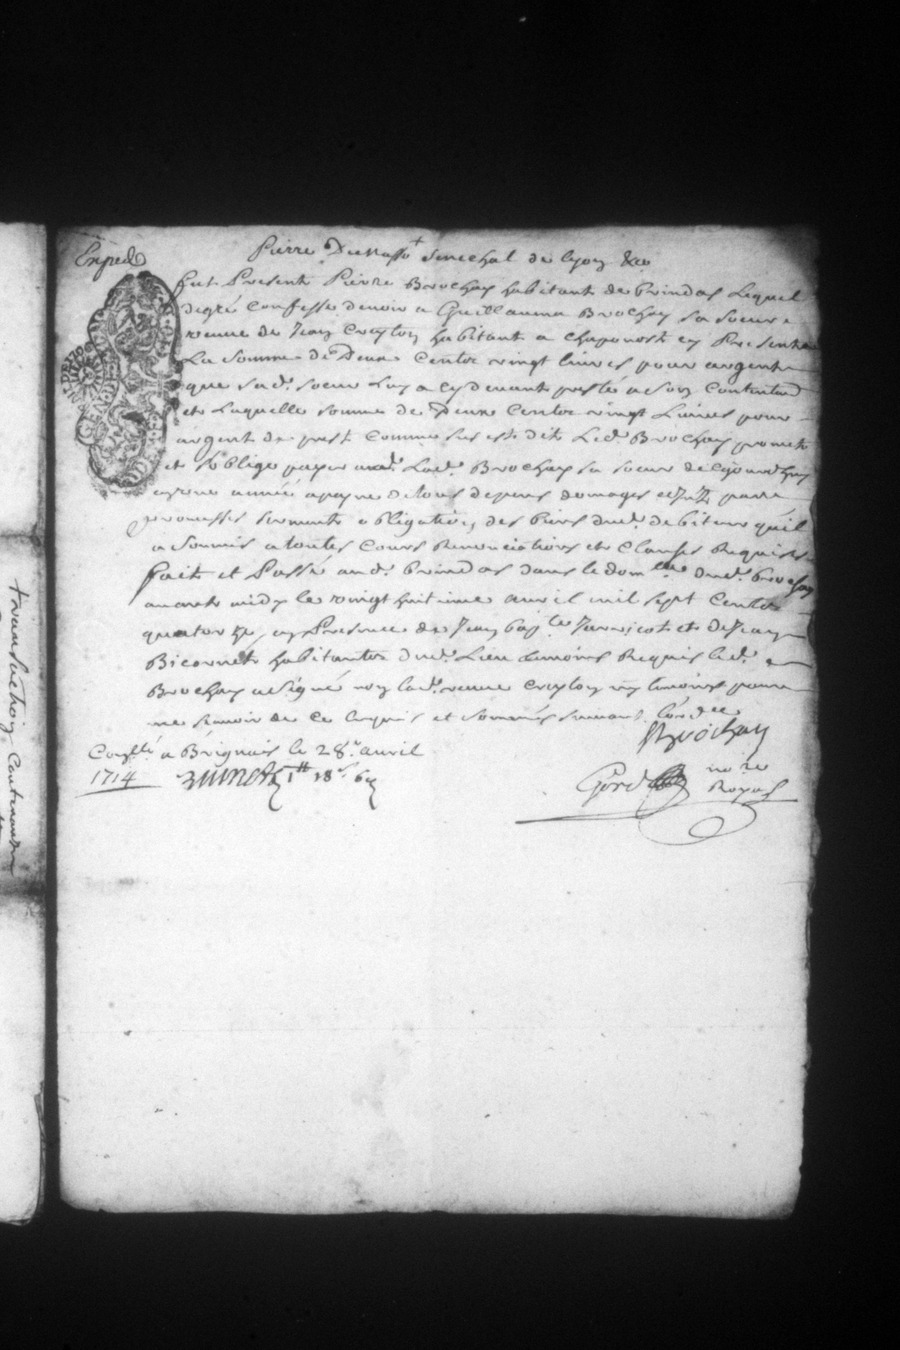 Exped
Pierre Dumasso Senechal de Lyon &c
fut Present Pierre Brochay habitant de brindas Lequel
degré Confesse devoir a Guillauma Brochay sa Soeur
veuve de Jean Creyton habitant a chaponost cy Presente
La Somme de Deux Centz vingt livres pour argent
que sad. soeur Luy a cydevant presté a son Contentement
et Laquelle somme de Deux Centz vingt Livres pour
argent de prest Comme sus est dit Led. Brochay promet
et s'oblige payer a Lad. Brochay sa soeur dicyourdhuy
en une année a payne de tous depens domages par
promesses serments obligation des biens dud. debiteur quil
a Soumis a toutes Cours Renonciations et Clauses Requises
fait et Passé aud. brindas dans le dom.lle dud. Brochay
avant midy le vingt huitieme avril mil sept Centz
quatorze en Presence de Jean bap.te et de Jean
Bicornet habitantz dud. Lieu temoins Requis led.
Brochay a Signé non lad. veuve Creyton ny temoins pour
ne scavoir de ce Enquis et sommés suivant lordce
Brochay
Conllé a Brignais le 28e avril
1714
Gord nore
Royal
transaction Contenant